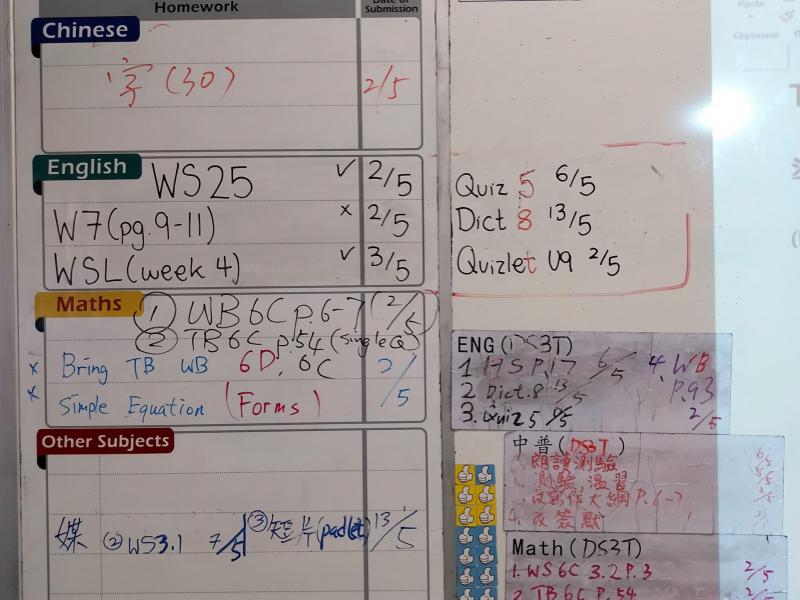 Homework
Date of
Submission
Chinese
字 (30) 2/5
English
WS25 ✓ 2/5
W7(pg.9-11) x 2/5
WSL(week 4) ✓ 3/5
Maths
① WB 6C p.6-7 (2/5)
② TB 6C p.54 (Single Q)
x Bring TB WB 6D, 6C 2/5
x Simple Equation (Forms)
Other Subjects
媒 ② WS3.1 7/5 ③短片(padlet) 13/5
Quiz 5 6/5
Dict 8 13/5
Quizlet U9 2/5
ENG(DS3T)
1 P.17 6/5 4. WB
2 Dict.8 13/5 P.93
3. Quiz 5 6/5 2/5
中普(DS3T)
朗讀測驗
測驗溫習
改寫作大綱P.6-7
4.改簽默
Math(DS3T)
1. WS 6C 3.2 P.3 2/5
2. TB 6C P.54 2/5
Paste
Clipboard